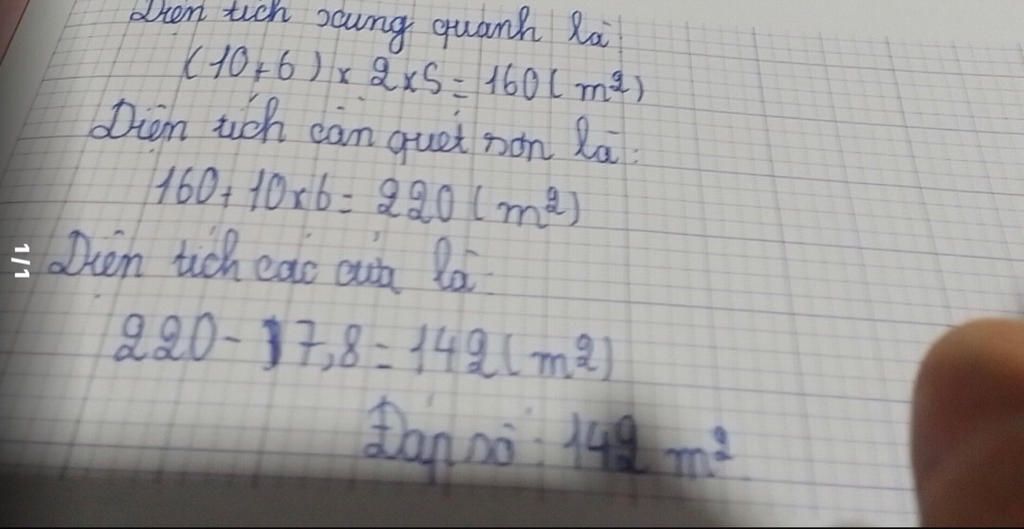 Diện tích xung quanh là
(10+6) x 2 x 5 = 160 (m²)
Diện tích cần quét sơn là:
160 + 10 x 6 = 220 (m²)
Diện tích các cửa là
220 - 17,8 = 142 (m²)
Đáp số: 142 m²
1/1